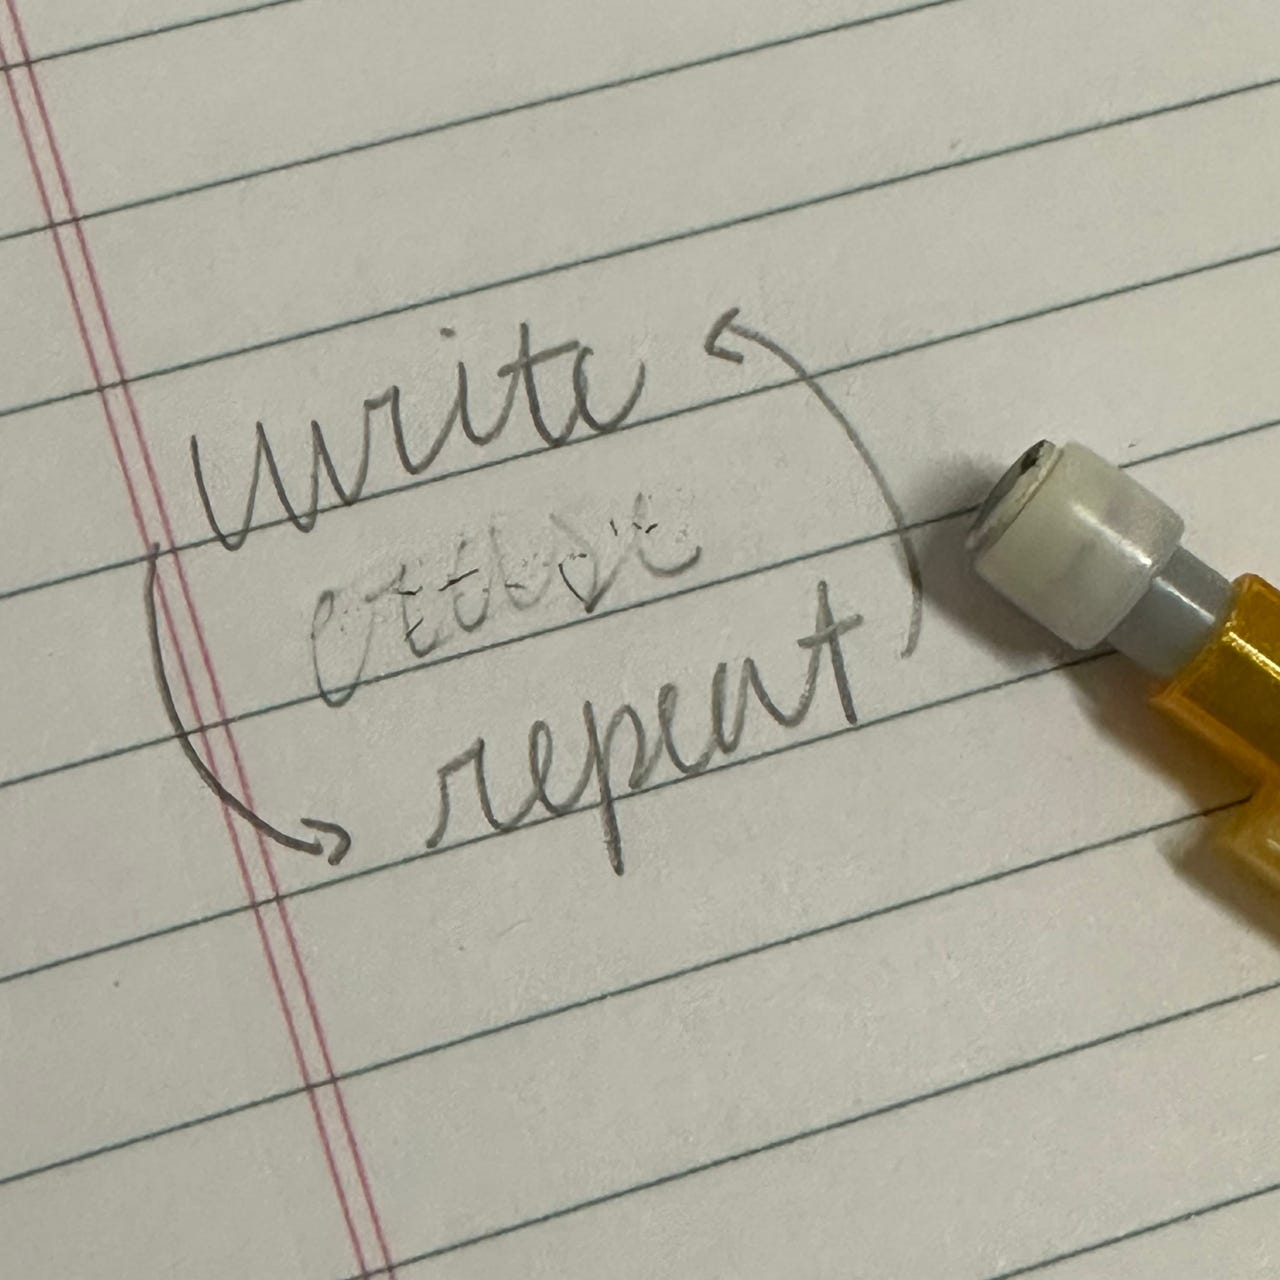 write
erase
repeat